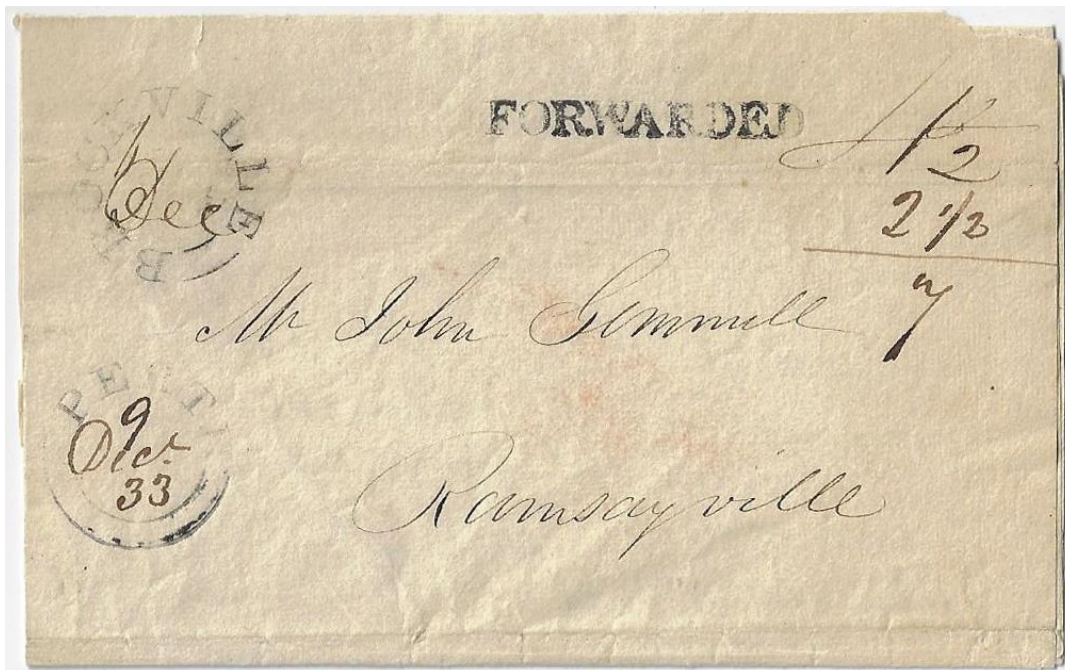 BROCKVILLE
Dec
FORWARDED
4 1/2
2 1/2
7
Mr John Gemmill
PERTH
9
Decr
33
Ramsayville